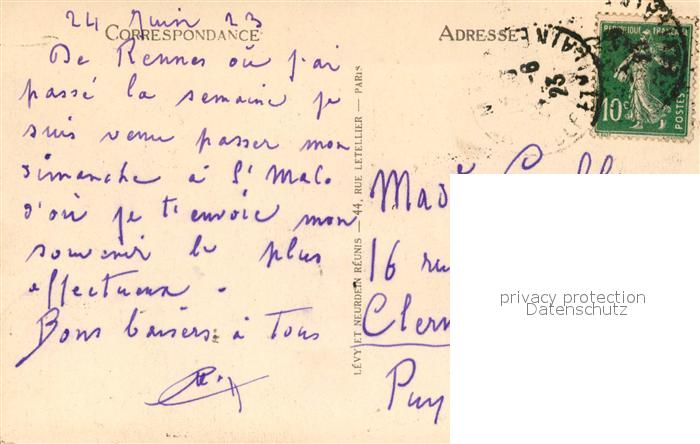 24 Juin 23
CORRESPONDANCE
De Rennes où j'ai
passé la semaine je
suis venu passer mon
dimanche à St Malo
d'où je t'envoie mon
souvenir le plus
affectueux.
Bons baisers à Tous
LÉVY ET NEURDEIN RÉUNIS — 44, RUE LETELLIER — PARIS
ADRESSE
RÉPUBLIQUE FRANÇAISE
10c
POSTES
23
Mad
16 ru
Clerm
Puy
privacy protection
Datenschutz